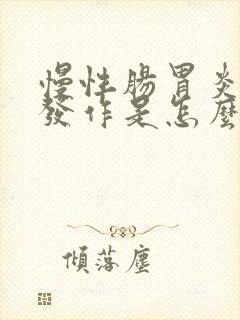 慢性腸胃炎
發作是怎麼
傾落塵